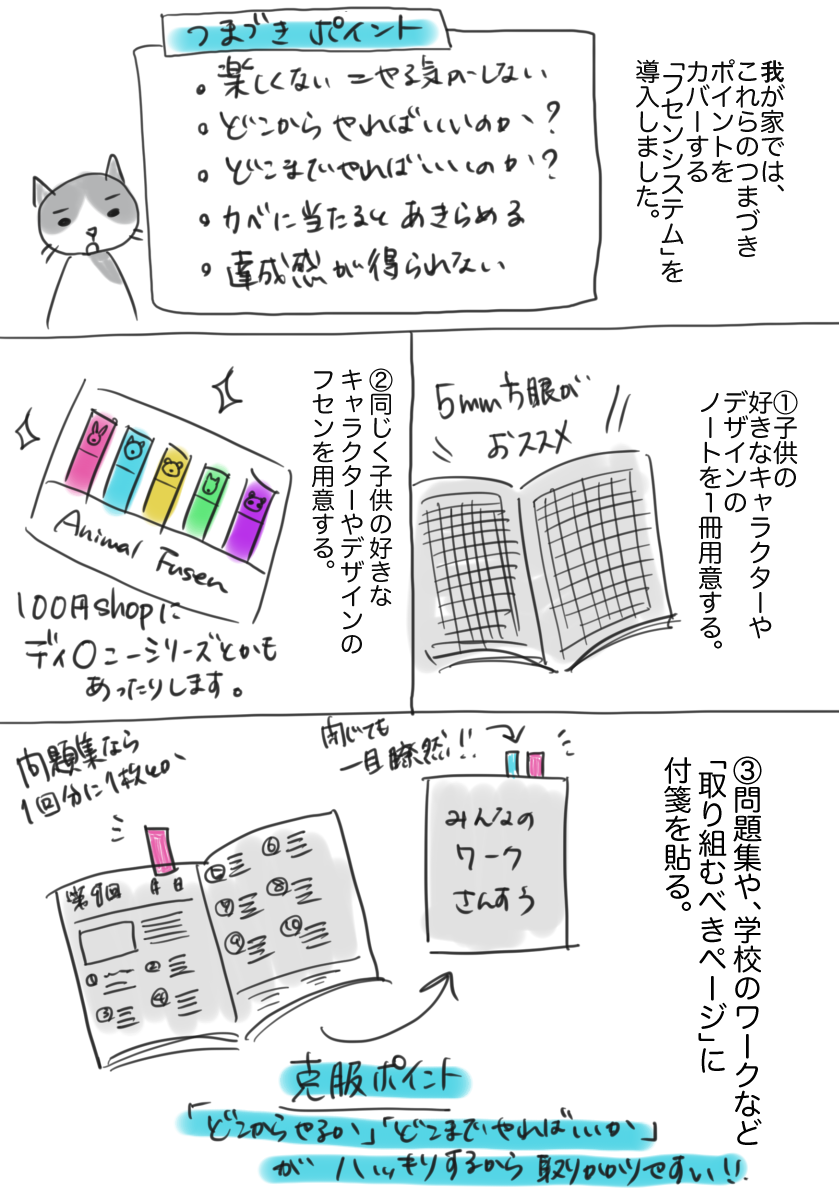 我が家では、
これらのつまづき
ポイントを
カバーする
「フセンシステム」を
導入しました。
つまづきポイント
・楽しくない=やる気がしない
・どこからやればいいのか?
・どこまでやればいいのか?
・カベに当たるとあきらめる
・達成感が得られない
①子供の
好きなキャラクターや
デザインの
ノートを1冊用意する。
5mm方眼が
おススメ
②同じく子供の好きな
キャラクターやデザインの
フセンを用意する。
Animal Fusen
100円shopに
ディ〇ニーシリーズとかも
あったりします。
③問題集や、学校のワークなど
「取り組むべきページ」に
付箋を貼る。
閉じても
一目瞭然!!
みんなの
ワーク
さんすう
問題集なら
1回分に1枚とか
第9回 月 日
①
②
③
④
⑤
⑥
⑦
⑧
⑨
⑩
克服ポイント
「どこからやるか」「どこまでやればいいか」
がハッキリするから取りかかりやすい!!